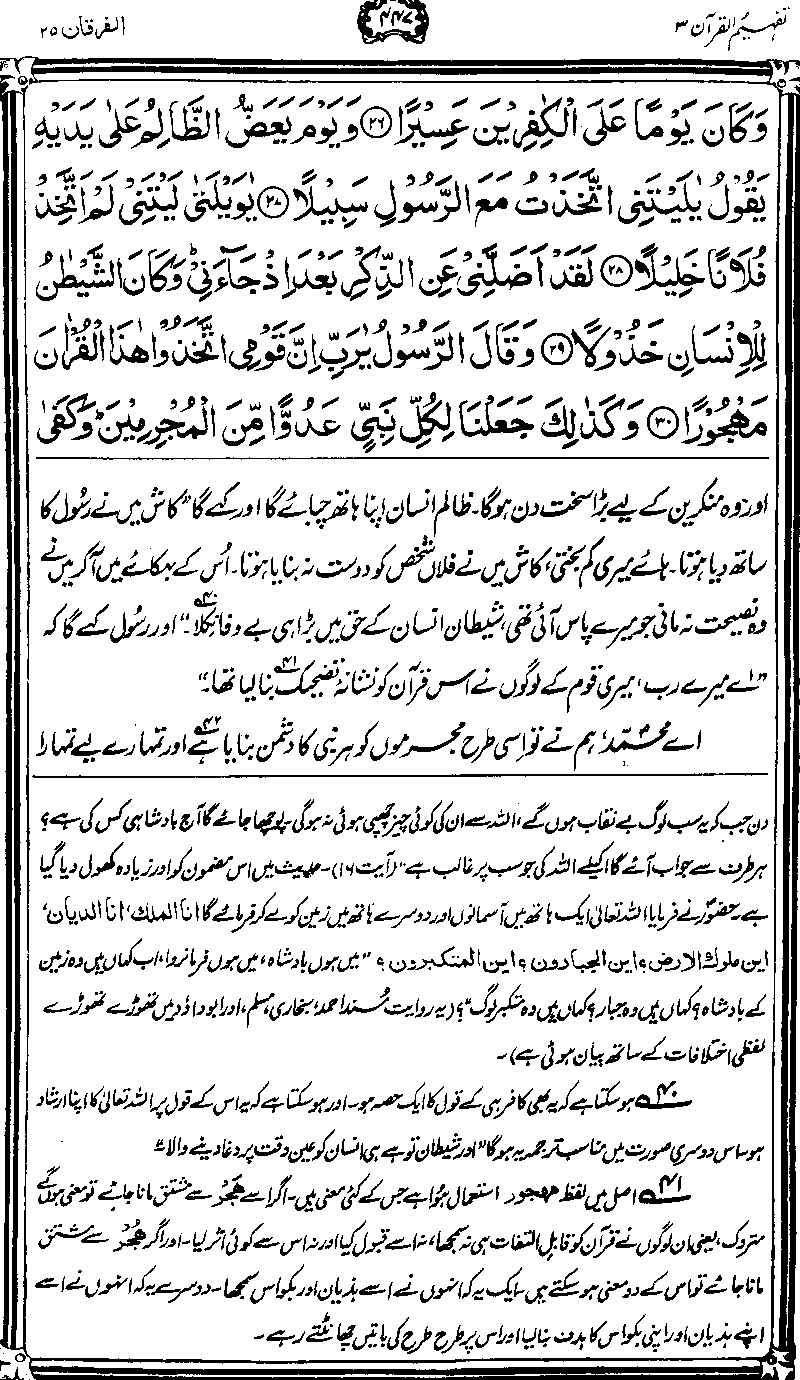 تفہیم القرآن ۳
۴۴۷
الفرقان ۲۵
وَكَانَ يَوْمًا عَلَى الْكٰفِرِيْنَ عَسِيْرًا ﴿۲۶﴾ وَيَوْمَ يَعَضُّ الظَّالِمُ عَلٰى يَدَيْهِ
يَقُوْلُ يٰلَيْتَنِى اتَّخَذْتُ مَعَ الرَّسُوْلِ سَبِيْلًا ﴿۲۷﴾ يٰوَيْلَتٰى لَيْتَنِيْ لَمْ اَتَّخِذْ
فُلَانًا خَلِيْلًا ﴿۲۸﴾ لَقَدْ اَضَلَّنِيْ عَنِ الذِّكْرِ بَعْدَ اِذْ جَآءَنِيْ ؕ وَكَانَ الشَّيْطٰنُ
لِلْاِنْسَانِ خَذُوْلًا ﴿۲۹﴾ وَقَالَ الرَّسُوْلُ يٰرَبِّ اِنَّ قَوْمِى اتَّخَذُوْا هٰذَا الْقُرْاٰنَ
مَهْجُوْرًا ﴿۳۰﴾ وَكَذٰلِكَ جَعَلْنَا لِكُلِّ نَبِيٍّ عَدُوًّا مِّنَ الْمُجْرِمِيْنَ ؕ وَكَفٰى
اور وہ منکرین کے لیے بڑا سخت دن ہوگا۔ ظالم انسان اپنا ہاتھ چبائے گا اور کہے گا ”کاش میں نے رسول کا
ساتھ دیا ہوتا۔ ہائے میری کم بختی، کاش میں نے فلاں شخص کو دوست نہ بنایا ہوتا۔ اُس کے بہکائے میں آکر میں نے
وہ نصیحت نہ مانی جو میرے پاس آئی تھی، شیطان انسان کے حق میں بڑا ہی بے وفا نکلا۔۴۰“ اور رسول کہے گا کہ
”اے میرے رب، میری قوم کے لوگوں نے اس قرآن کو نشانۂ تضحیک۴۱ بنا لیا تھا۔“
اے محمدؐ، ہم نے تو اسی طرح مجرموں کو ہر نبی کا دشمن بنایا ہے۴۲ اور تمہارے لیے تمہارا
دن جب کہ یہ سب لوگ بے نقاب ہوں گے، اللہ سے ان کی کوئی چیز چھپی ہوئی نہ ہوگی۔ پوچھا جائے گا آج بادشاہی کس کی ہے؟
ہر طرف سے جواب آئے گا اکیلے اللہ کی جو سب پر غالب ہے“ (آیت ۱۶)۔ حدیث میں اس مضمون کو اور زیادہ کھول دیا گیا
ہے۔ حضورؐ نے فرمایا اللہ تعالیٰ ایک ہاتھ میں آسمانوں اور دوسرے ہاتھ میں زمین کو لے کر فرمائے گا انا الملك، انا الديان،
اين ملوك الارض؟ اين الجبارون؟ اين المتكبرون؟ ”میں ہوں بادشاہ، میں ہوں فرمانروا، اب کہاں ہیں وہ زمین
کے بادشاہ؟ کہاں ہیں وہ جبار؟ کہاں ہیں وہ متکبر لوگ“؟ (یہ روایت مُسند احمد، بخاری، مسلم، اور ابو داؤد میں تھوڑے تھوڑے
لفظی اختلافات کے ساتھ بیان ہوئی ہے)۔
۴۰ ہو سکتا ہے کہ یہ بھی کافر ہی کے قول کا ایک حصہ ہو۔ اور ہو سکتا ہے کہ یہ اس کے قول پر اللہ تعالیٰ کا اپنا ارشاد
ہو۔ اس دوسری صورت میں مناسب ترجمہ یہ ہوگا ”اور شیطان تو ہے ہی انسان کو عین وقت پر دغا دینے والا“
۴۱ اصل میں لفظ مهجور استعمال ہوا ہے جس کے کئی معنی ہیں۔ اگر اسے هَجْر سے مشتق مانا جائے تو معنی ہوں گے
متروک، یعنی ان لوگوں نے قرآن کو قابلِ التفات ہی نہ سمجھا، نہ اسے قبول کیا اور نہ اس سے کوئی اثر لیا۔ اور اگر هُجْر سے مشتق
مانا جائے تو اس کے دو معنی ہو سکتے ہیں۔ ایک یہ کہ انہوں نے اسے ہذیان اور بکواس سمجھا۔ دوسرے یہ کہ انہوں نے اسے
اپنے ہذیان اور اپنی بکواس کا ہدف بنا لیا اور اس پر طرح طرح کی باتیں چھانٹتے رہے۔